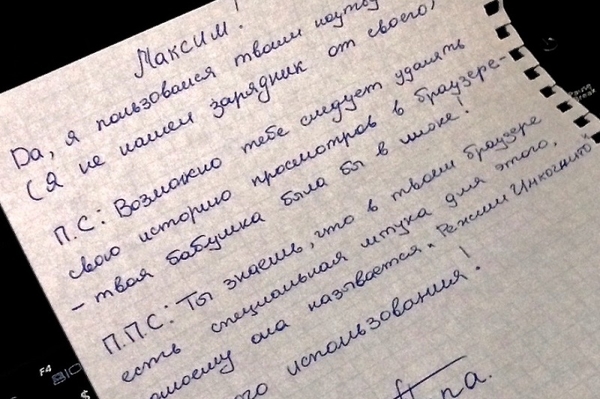 Максим!
Да, я пользовался твоим ноутбу
(Я не нашел зарядник от своего)
П.С: Возможно тебе следует удалять
свою историю просмотров в браузере-
- твоя бабушка была бы в шоке!
П.П.С: Ты знаешь, что в твоем браузере
есть специальная штука для этого,
помоему она называется "Режим Инкогнито"
ого использования!
Папа.
F4